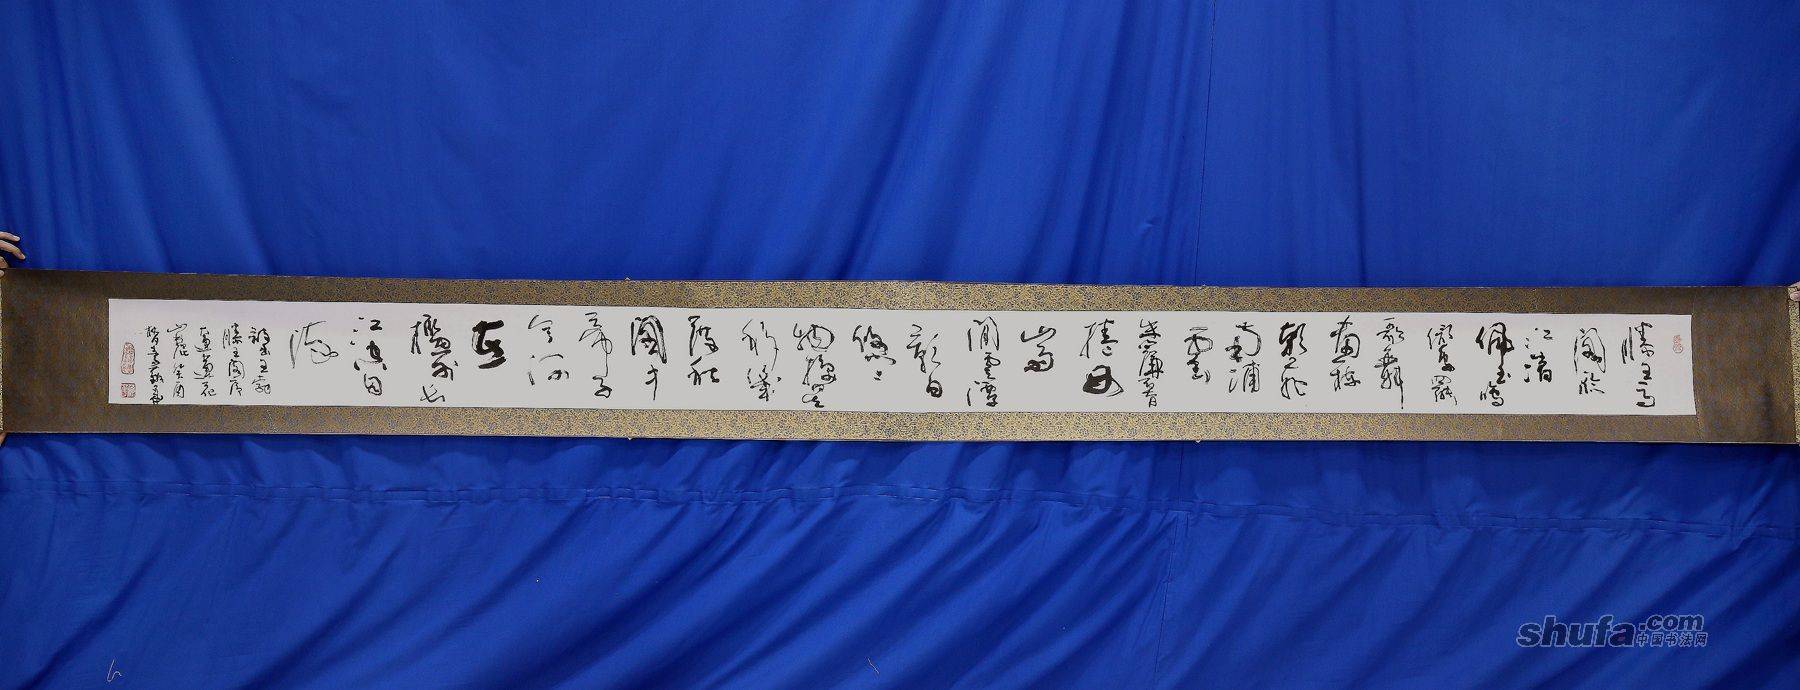 滕王高
閣臨
江渚
佩玉鳴
鸞罷
歌舞
畫棟
朝飛
南浦
雲
珠簾暮
捲西
山雨
閒雲潭
影日
悠々
物換星
移幾
度秋
閣中
帝子
今何
在
檻外長
江空自
流
王勃
滕王閣序
shufa.com
中国书法网